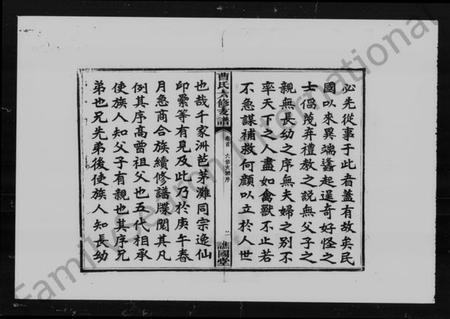 必先從事于此者蓋有故矣民
國以來異端蠭起逞奇好怪之
士倡蔑弃禮教之說無父子之
親無長幼之序無夫婦之別不
率天下之人盡如禽獸不止若
不急謀補救何顏以立於人世
曹氏六修支譜
卷首 六修支譜序
二
譙國堂
也哉千家洲芭茅灘同宗逸仙
印纍等有見及此乃於庚午春
月急商合族續修譜牒閱其凡
例其序高曾祖父也五代相承
使族人知父子有親也其序兄
弟也兄先弟後使族人知長幼
FamilySearch International